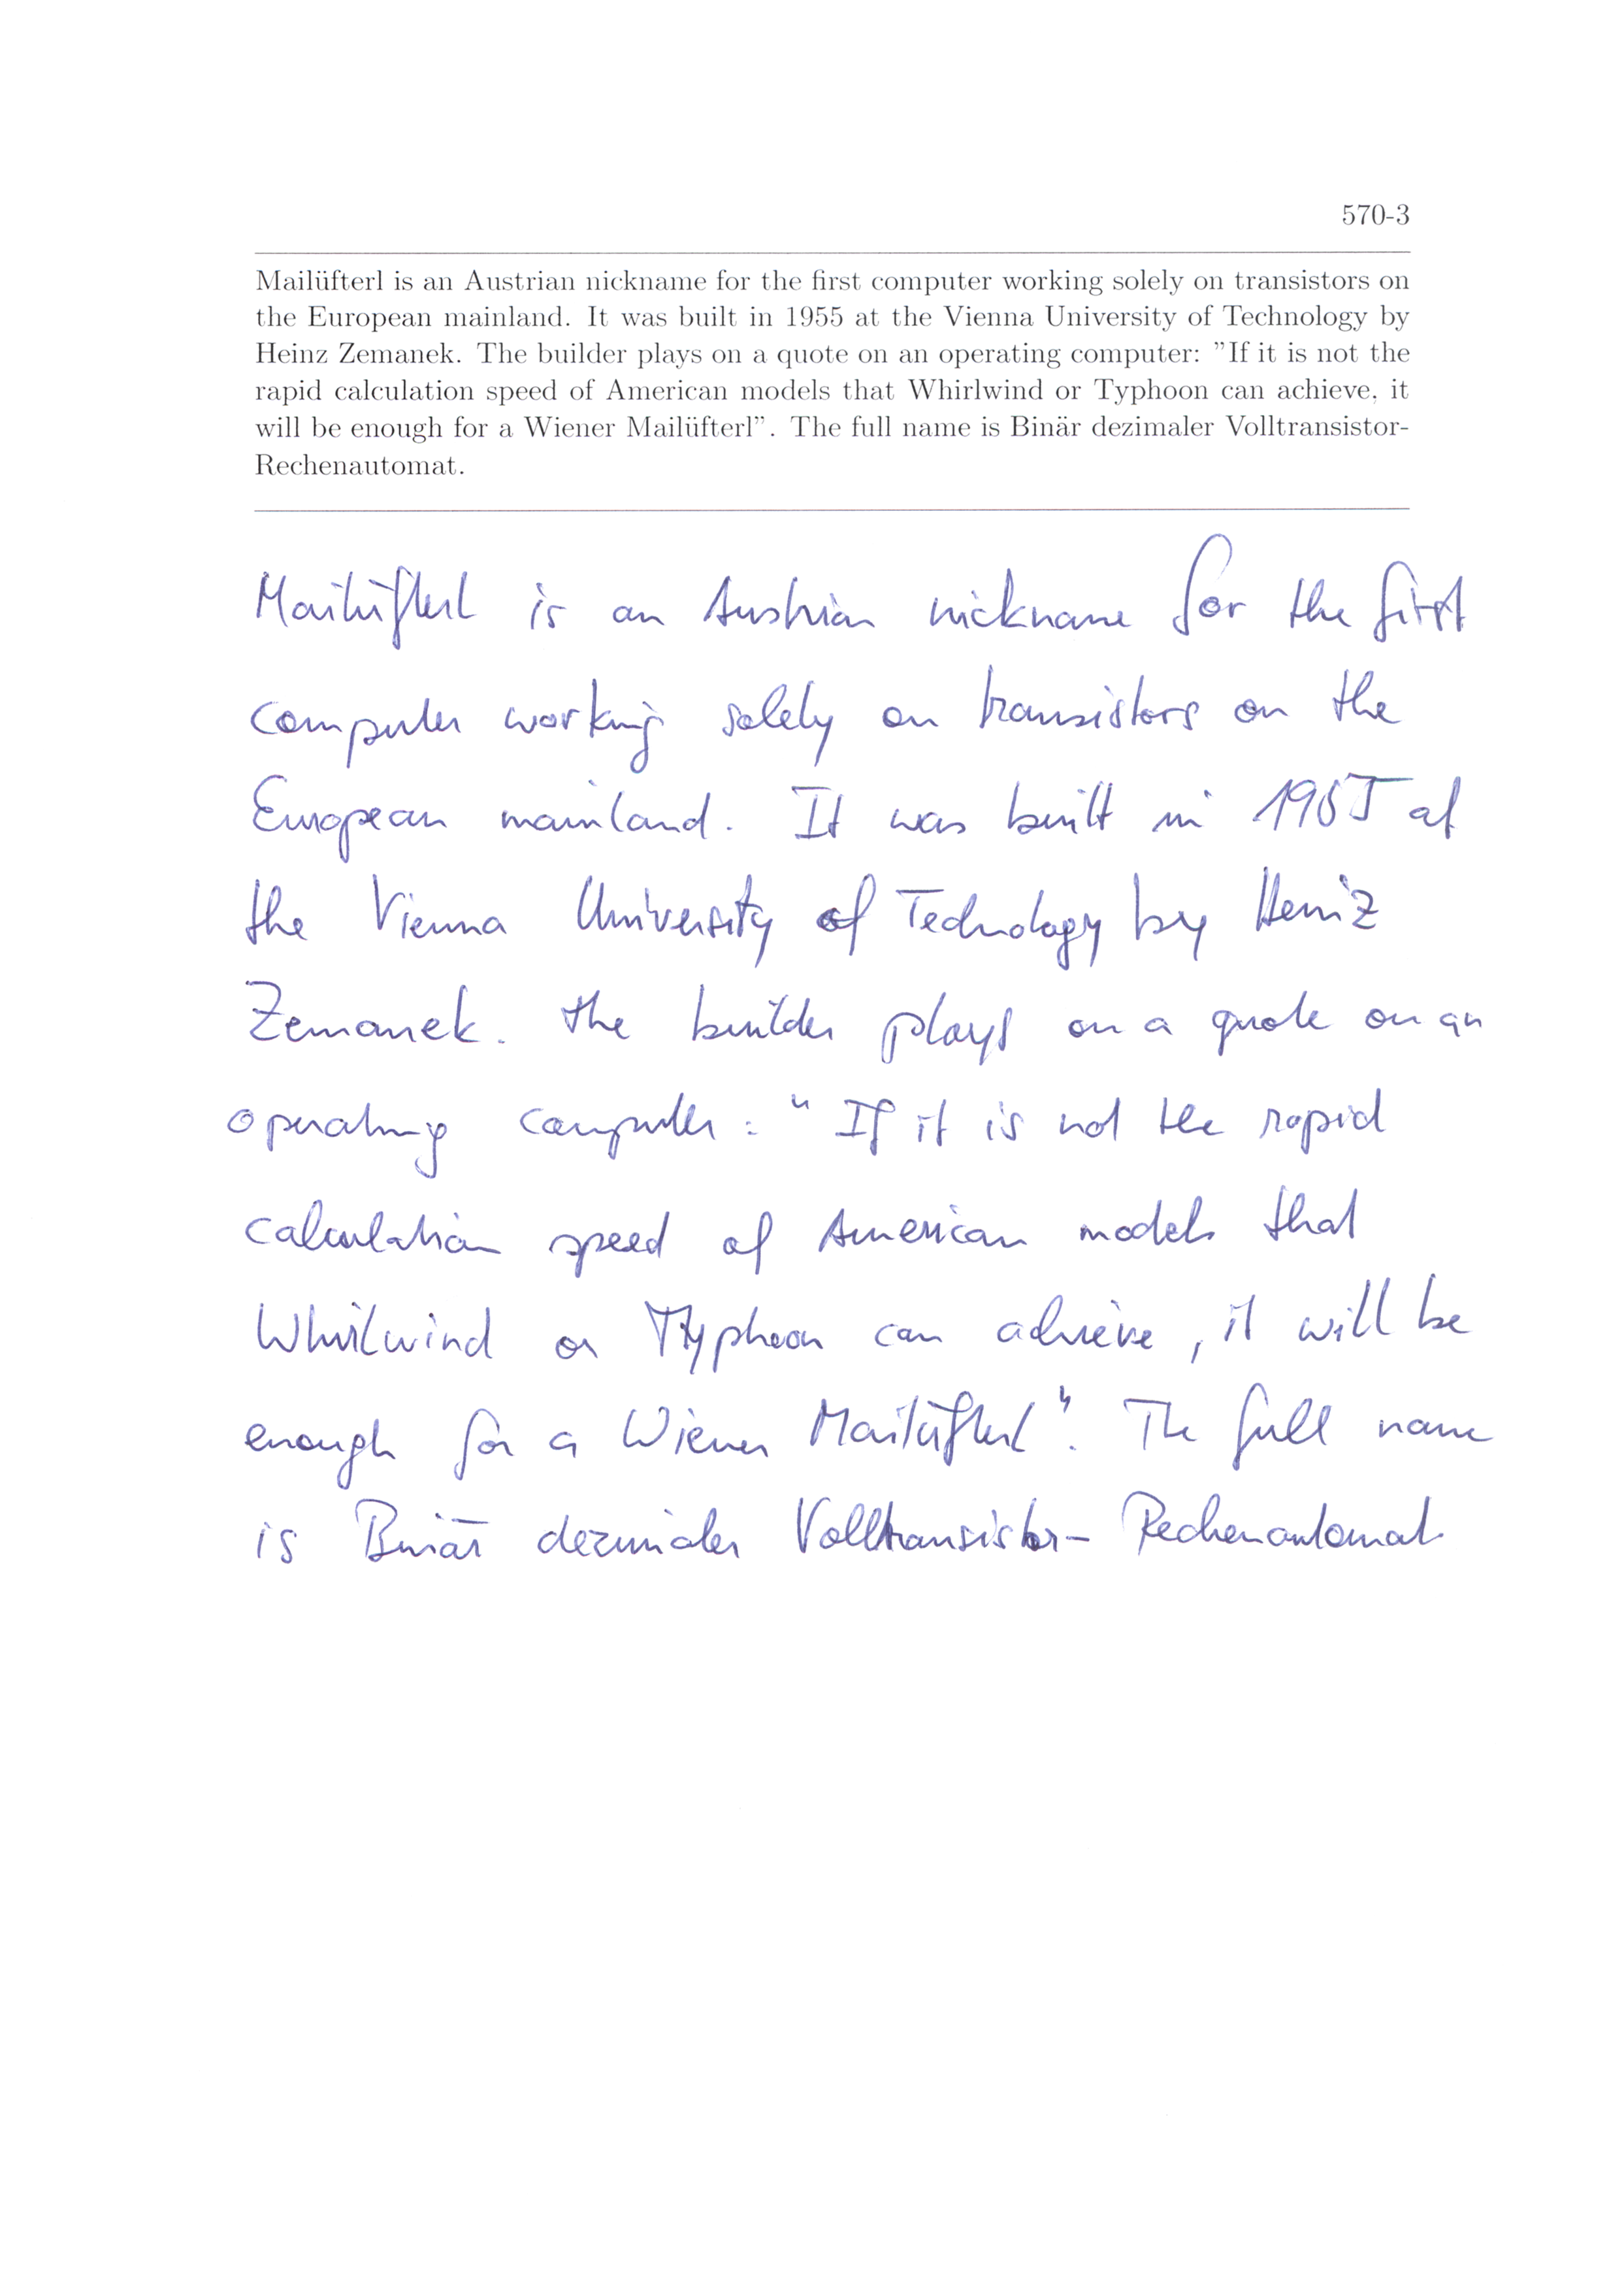 570-3
Mailüfterl is an Austrian nickname for the first computer working solely on transistors on
the European mainland. It was built in 1955 at the Vienna University of Technology by
Heinz Zemanek. The builder plays on a quote on an operating computer: ”If it is not the
rapid calculation speed of American models that Whirlwind or Typhoon can achieve, it
will be enough for a Wiener Mailüfterl”. The full name is Binär dezimaler Volltransistor-
Rechenautomat.
Mailüfterl is an Austrian nickname for the first
computer working solely on transistors on the
European mainland. It was built in 1955 at
the Vienna University of Technology by Heinz
Zemanek. the builder plays on a quote on an
operating computer: "If it is not the rapid
calculation speed of American models that
Whirlwind or Typhoon can achieve, it will be
enough for a Wiener Mailüfterl". The full name
is Binär dezimaler Volltransistor- Rechenautomat.